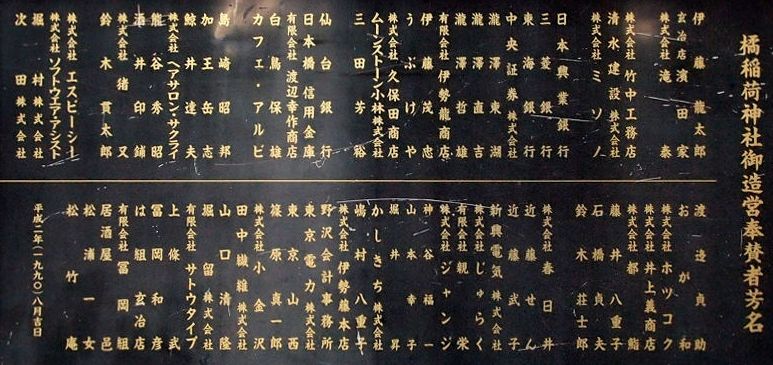 橘稲荷神社御造営奉賛者芳名
伊藤龍太郎
玄冶店濱田家
株式会社滝泰
株式会社竹中工務店
清水建設株式会社
株式会社ミソノ
日本興業銀行
三菱銀行
東海銀行
中央証券株式会社
瀧澤東湖
瀧澤直吉
瀧澤哲雄
有限会社伊勢龍商店
伊藤茂忠
うぶけや
株式会社久保田商店
ムーンストーン小林株式会社
三田芳裕
仙台銀行
日本橋信用金庫
有限会社渡辺幸作商店
白鳥保雄
カフェ・アルビ
島崎昭邦
加王岳志
鯨井達夫
株式会社ヘアサロン・サクライ
熊谷秀昭
酒井印舗
株式会社猪又
鈴木貫太郎
株式会社エスピーシー
株式会社ソフトウエア・アシスト
堀村株式会社
次田株式会社
渡辺貞助
おが和
株式会社ホツコク
株式会社井上義商店
株式会社都鮨
藤井八重子
石橋貞夫
鈴木荘士郎
株式会社春日井
近藤せん
近藤武子
新興電気株式会社
株式会社じゅらく
有限会社親栄
株式会社ジャンジ
神谷福一
山本幸子
堀井昇
かしきち株式会社
嶋村八重子
株式会社伊勢藤本店
野沢会計事務所
東京電力株式会社
東京山西
篠原真一郎
株式会社小金沢
田中繊維株式会社
山口清隆
堀留株式会社
有限会社サトウタイプ
上條武
冨岡和彦
は組玄冶店
有限会社冨岡組
居酒屋邑
松浦一女
松竹庵
平成二年(一九九〇)八月吉日